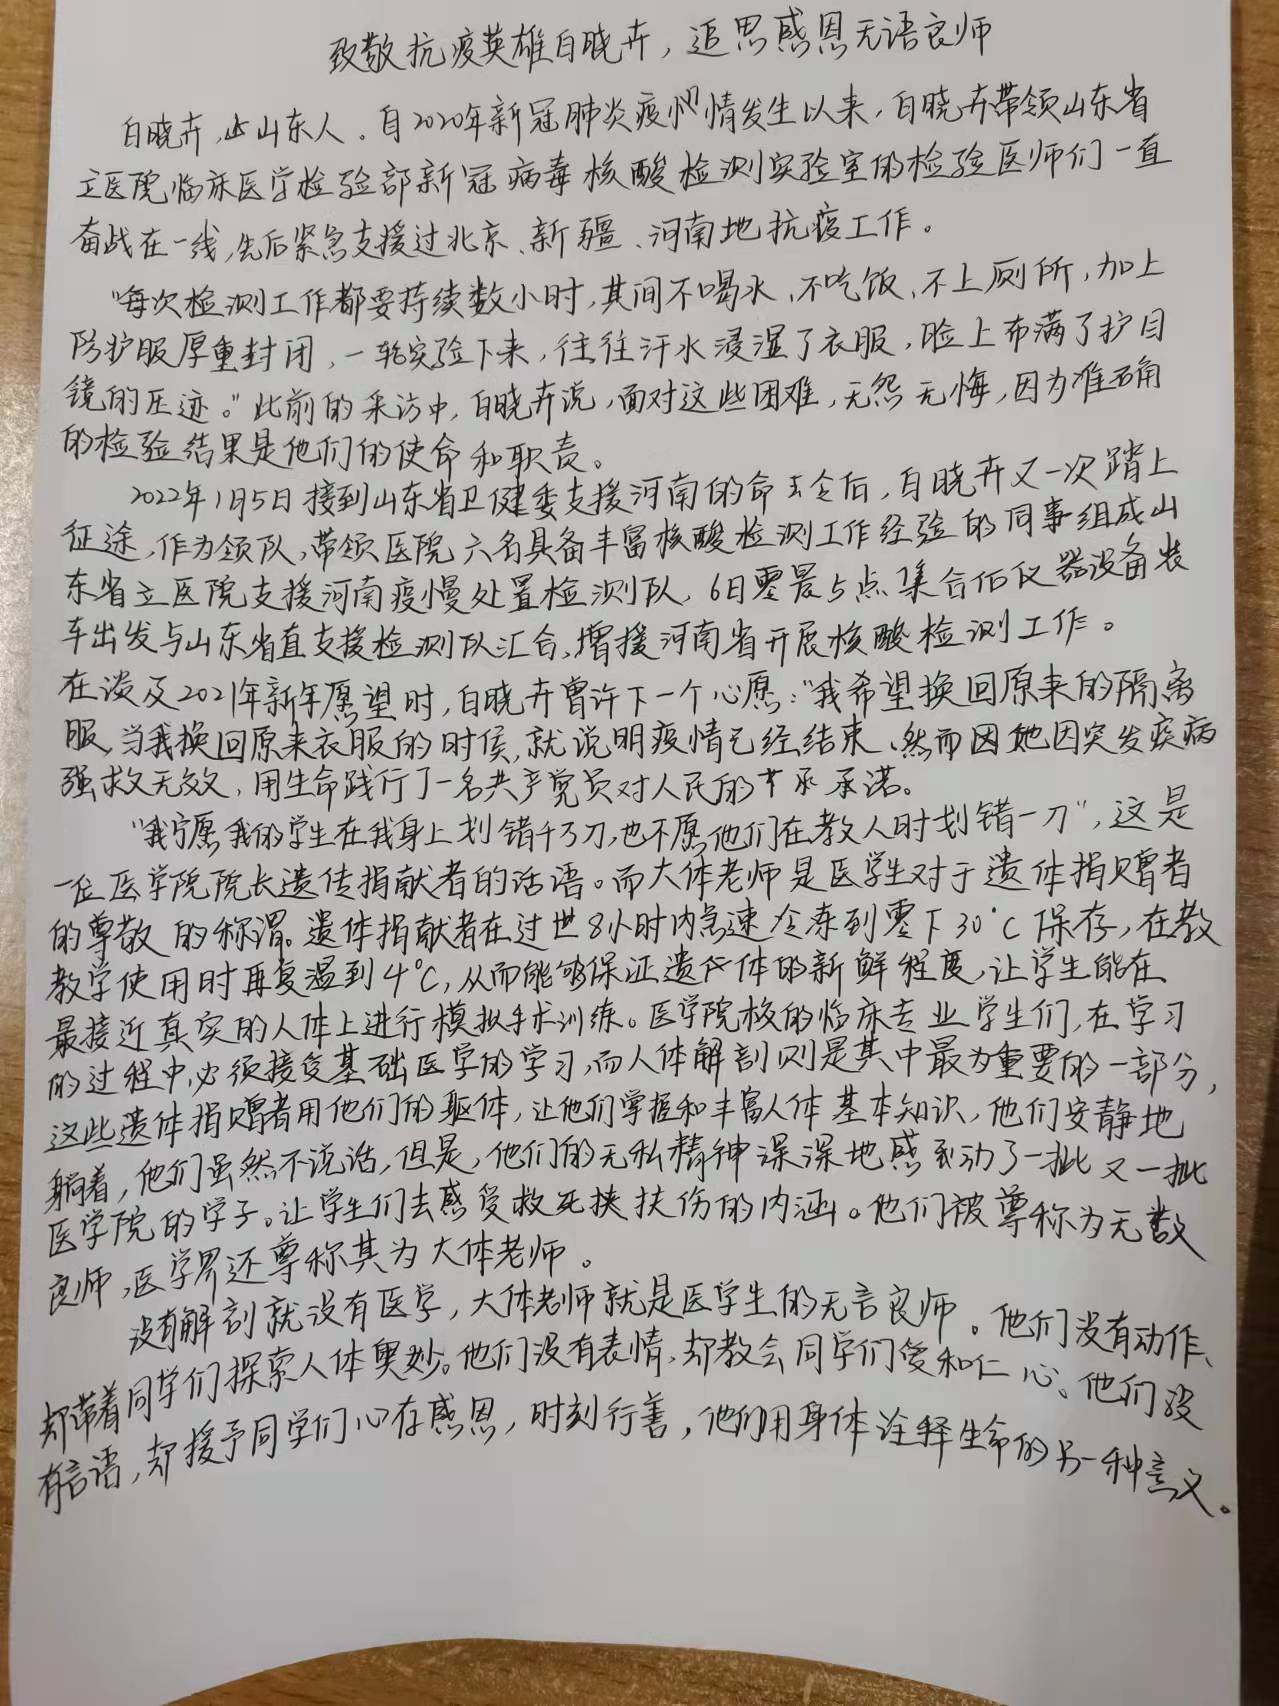 致敬抗疫英雄白晓卉，追思感恩无语良师
白晓卉，山东人。自2020年新冠肺炎疫情发生以来，白晓卉带领山东省
立医院临床医学检验部新冠病毒核酸检测实验室的检验医师们一直
奋战在一线，先后紧急支援过北京、新疆、河南地抗疫工作。
“每次检测工作都要持续数小时，其间不喝水、不吃饭、不上厕所，加上
防护服厚重封闭，一轮实验下来，往往汗水浸湿了衣服，脸上布满了护目
镜的压迹。”此前的采访中，白晓卉说，面对这些困难，无怨无悔，因为准确
的检验结果是他们的使命和职责。
2022年1月5日接到山东省卫健委支援河南的命令后，白晓卉又一次踏上
征途，作为领队，带领医院六名具备丰富核酸检测工作经验的同事组成山
东省立医院支援河南疫慢处置检测队，6日零晨5点集合佰仪器设备装
车出发与山东省直支援检测队汇合，增援河南省开展核酸检测工作。
在谈及2021年新年愿望时，白晓卉曾许下一个心愿：“我希望换回原来的隔离
服，当我换回原来衣服的时侯，就说明疫情已经结束、然而因她因突发疾病
强救无效，用生命践行了一名共产党员对人民的承诺。
“我宁愿我的学生在我身上划错千万刀，也不愿他们在教人时划错一刀”，这是
一位医学院院长遗传捐献者的话语。而大体老师是医学生对于遗体捐赠者
的尊敬的称谓。遗体捐献者在过世8小时内急速冷冻到零下30°C保存，在教
教学使用时再复温到4°C，从而能够保证遗体的新鲜程度，让学生能在
最接近真实的人体上进行模拟手术训练。医学院校的临床专业学生们，在学习
的过程中，必须接受基础医学的学习，而人体解剖则是其中最为重要的一部分，
这些遗体捐赠者用他们的躯体，让他们掌握和丰富人体基本知识，他们安静地
躺着，他们虽然不说话，但是，他们的无私精神深深地感动了一批又一批
医学院的学子。让学生们去感受救死扶伤的内涵。他们被尊称为无数
良师，医学界还尊称其为大体老师。
没有解剖就没有医学，大体老师就是医学生的无言良师。他们没有动作、
却带着同学们探索人体奥妙。他们没有表情，却教会同学们爱和仁心。他们没
有言语，却授予同学们心存感恩，时刻行善，他们用身体诠释生命的另一种意义。